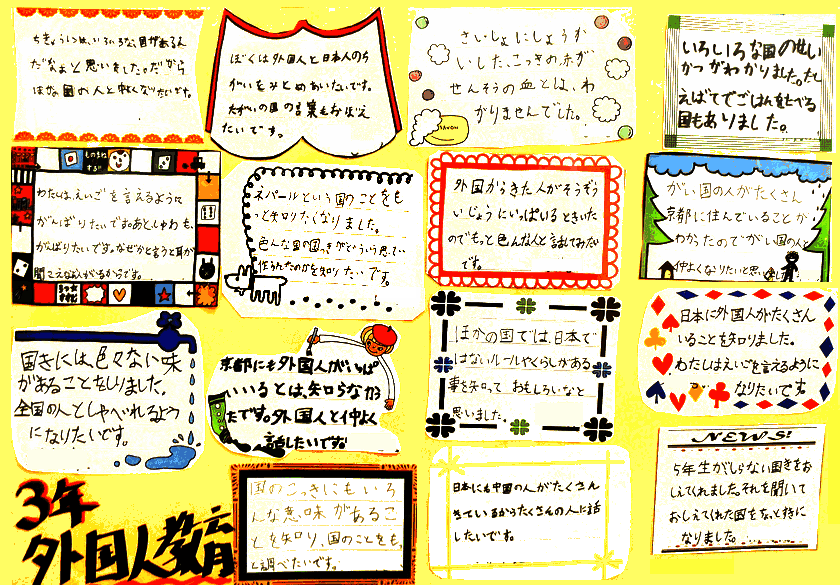 ちきゅうには、いろいろな、国があるん
だなあと思いました。だから
ほかの国の人と仲よくなりたいです。
ぼくは外国人と日本人のち
がいをみとめあいたいです。
たがいの国の言葉もおぼえ
たいです。
さいしょにしょうか
いした、こっきの赤が
せんそうの血とは、わ
かりませんでした。
SAVON
いろいろな国のせい
かつがわかりました。たと
えばてでごはんをたべる
国もありました。
わたしは、えいごを言えるように
がんばりたいです。あと、しゅわも、
がんばりたいです。なぜかと言うと耳が
聞こえない人がいるからです。
ネパールという国のことをも
っと知りたくなりました。
色んな国の国っきがどういう思いで
作られたのかを知りたいです。
外国からきた人がそうぞう
いじょうにいっぱいるときいた
のでもっと色んな人と話してみたい
です。
がい国の人がたくさん
京都に住んでいることが
わかったのでがい国の人と
仲よくなりたいと思いました。
国きには、色々ない味
があることをしりました。
全国の人としゃべれるよう
になりたいです。
京都にも外国人がいっぱ
いいるとは、知らなかっ
たです。外国人と仲よく
話したいです。
ほかの国では、日本で
はないルールやくらしがある
事を知って おもしろいなと
思いました。
日本に外国人がたくさん
いることを知りました。
わたしはえいごを言えるように
なりたいです
3年
外国人教育
国のこっきにもいろ
んな意味があるこ
とを知り、国のことをも、
と調べたいです。
日本にも中国の人がたくさん
きているからたくさんの人に話
したいです。
NEWS!
5年生がしらない国きをお
しえてくれました。それを聞いて
おしえてくれた国をもっと好きに
なりました。